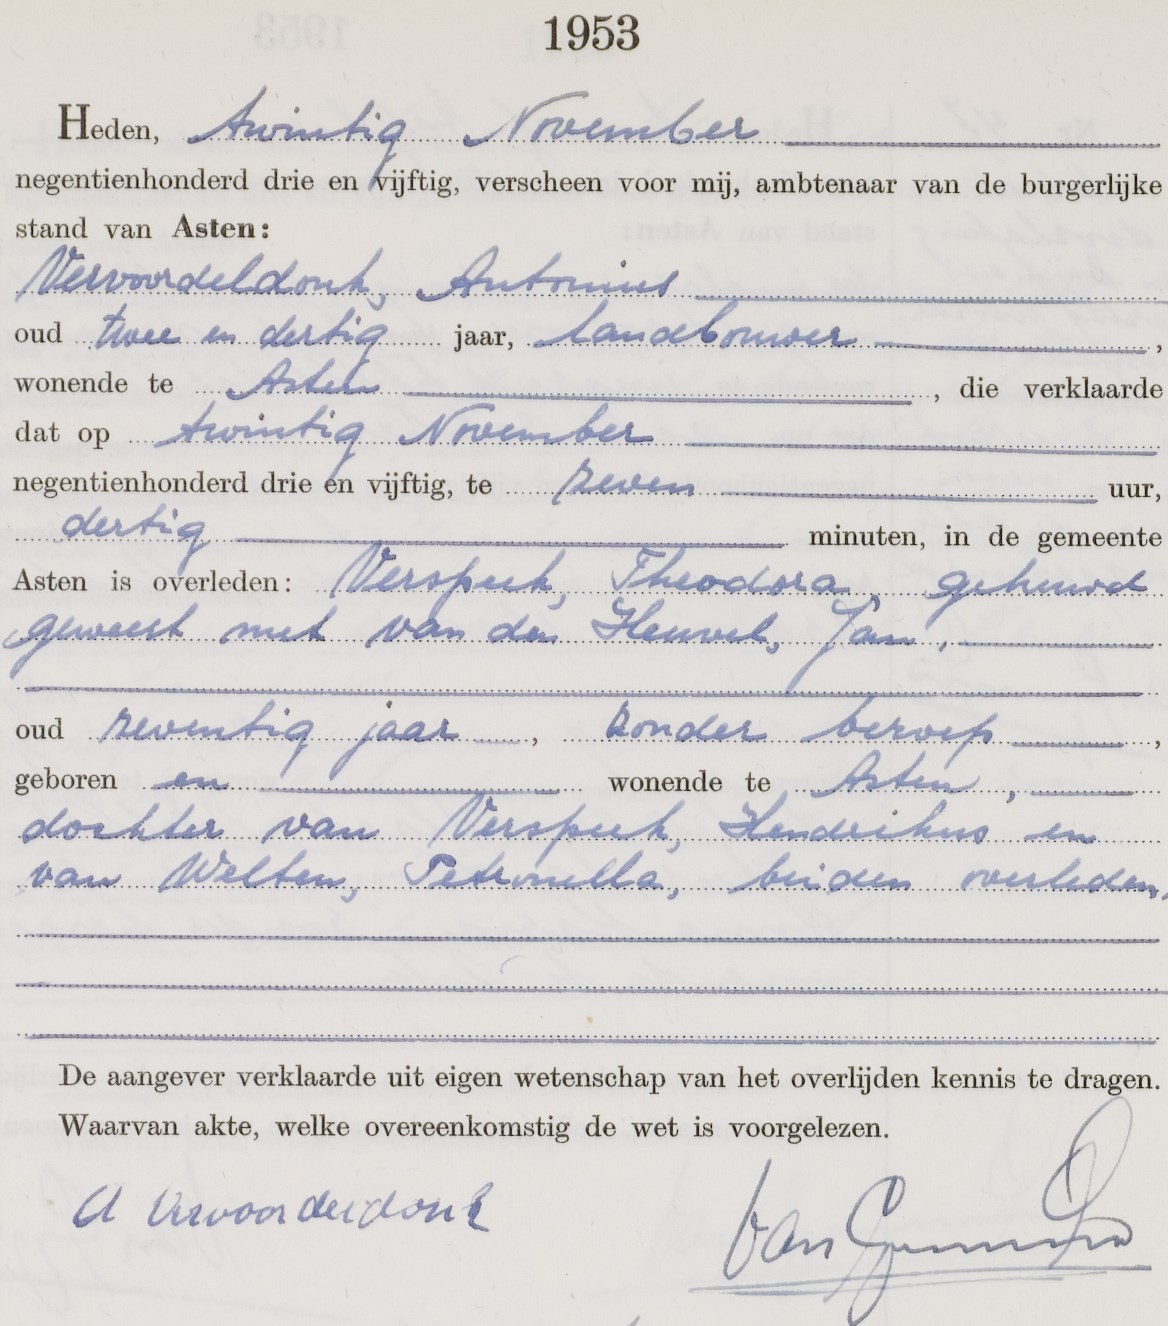 1953
Heden, twintig November
negentienhonderd drie en vijftig, verscheen voor mij, ambtenaar van de burgerlijke
stand van Asten:
Vervoordeldonk, Antonius
oud twee en dertig jaar, landbouwer ,
wonende te Asten , die verklaarde
dat op twintig November
negentienhonderd drie en vijftig, te zeven uur,
dertig minuten, in de gemeente
Asten is overleden: Verspeek, Theodora, gehuwd
geweest met van den Heuvel, Jan.
oud zeventig jaar , zonder beroep ,
geboren en wonende te Asten ,
dochter van Verspeek, Hendrikus en
van Welten, Petronella, beiden overleden.
De aangever verklaarde uit eigen wetenschap van het overlijden kennis te dragen.
Waarvan akte, welke overeenkomstig de wet is voorgelezen.
A Vervoordeldonk